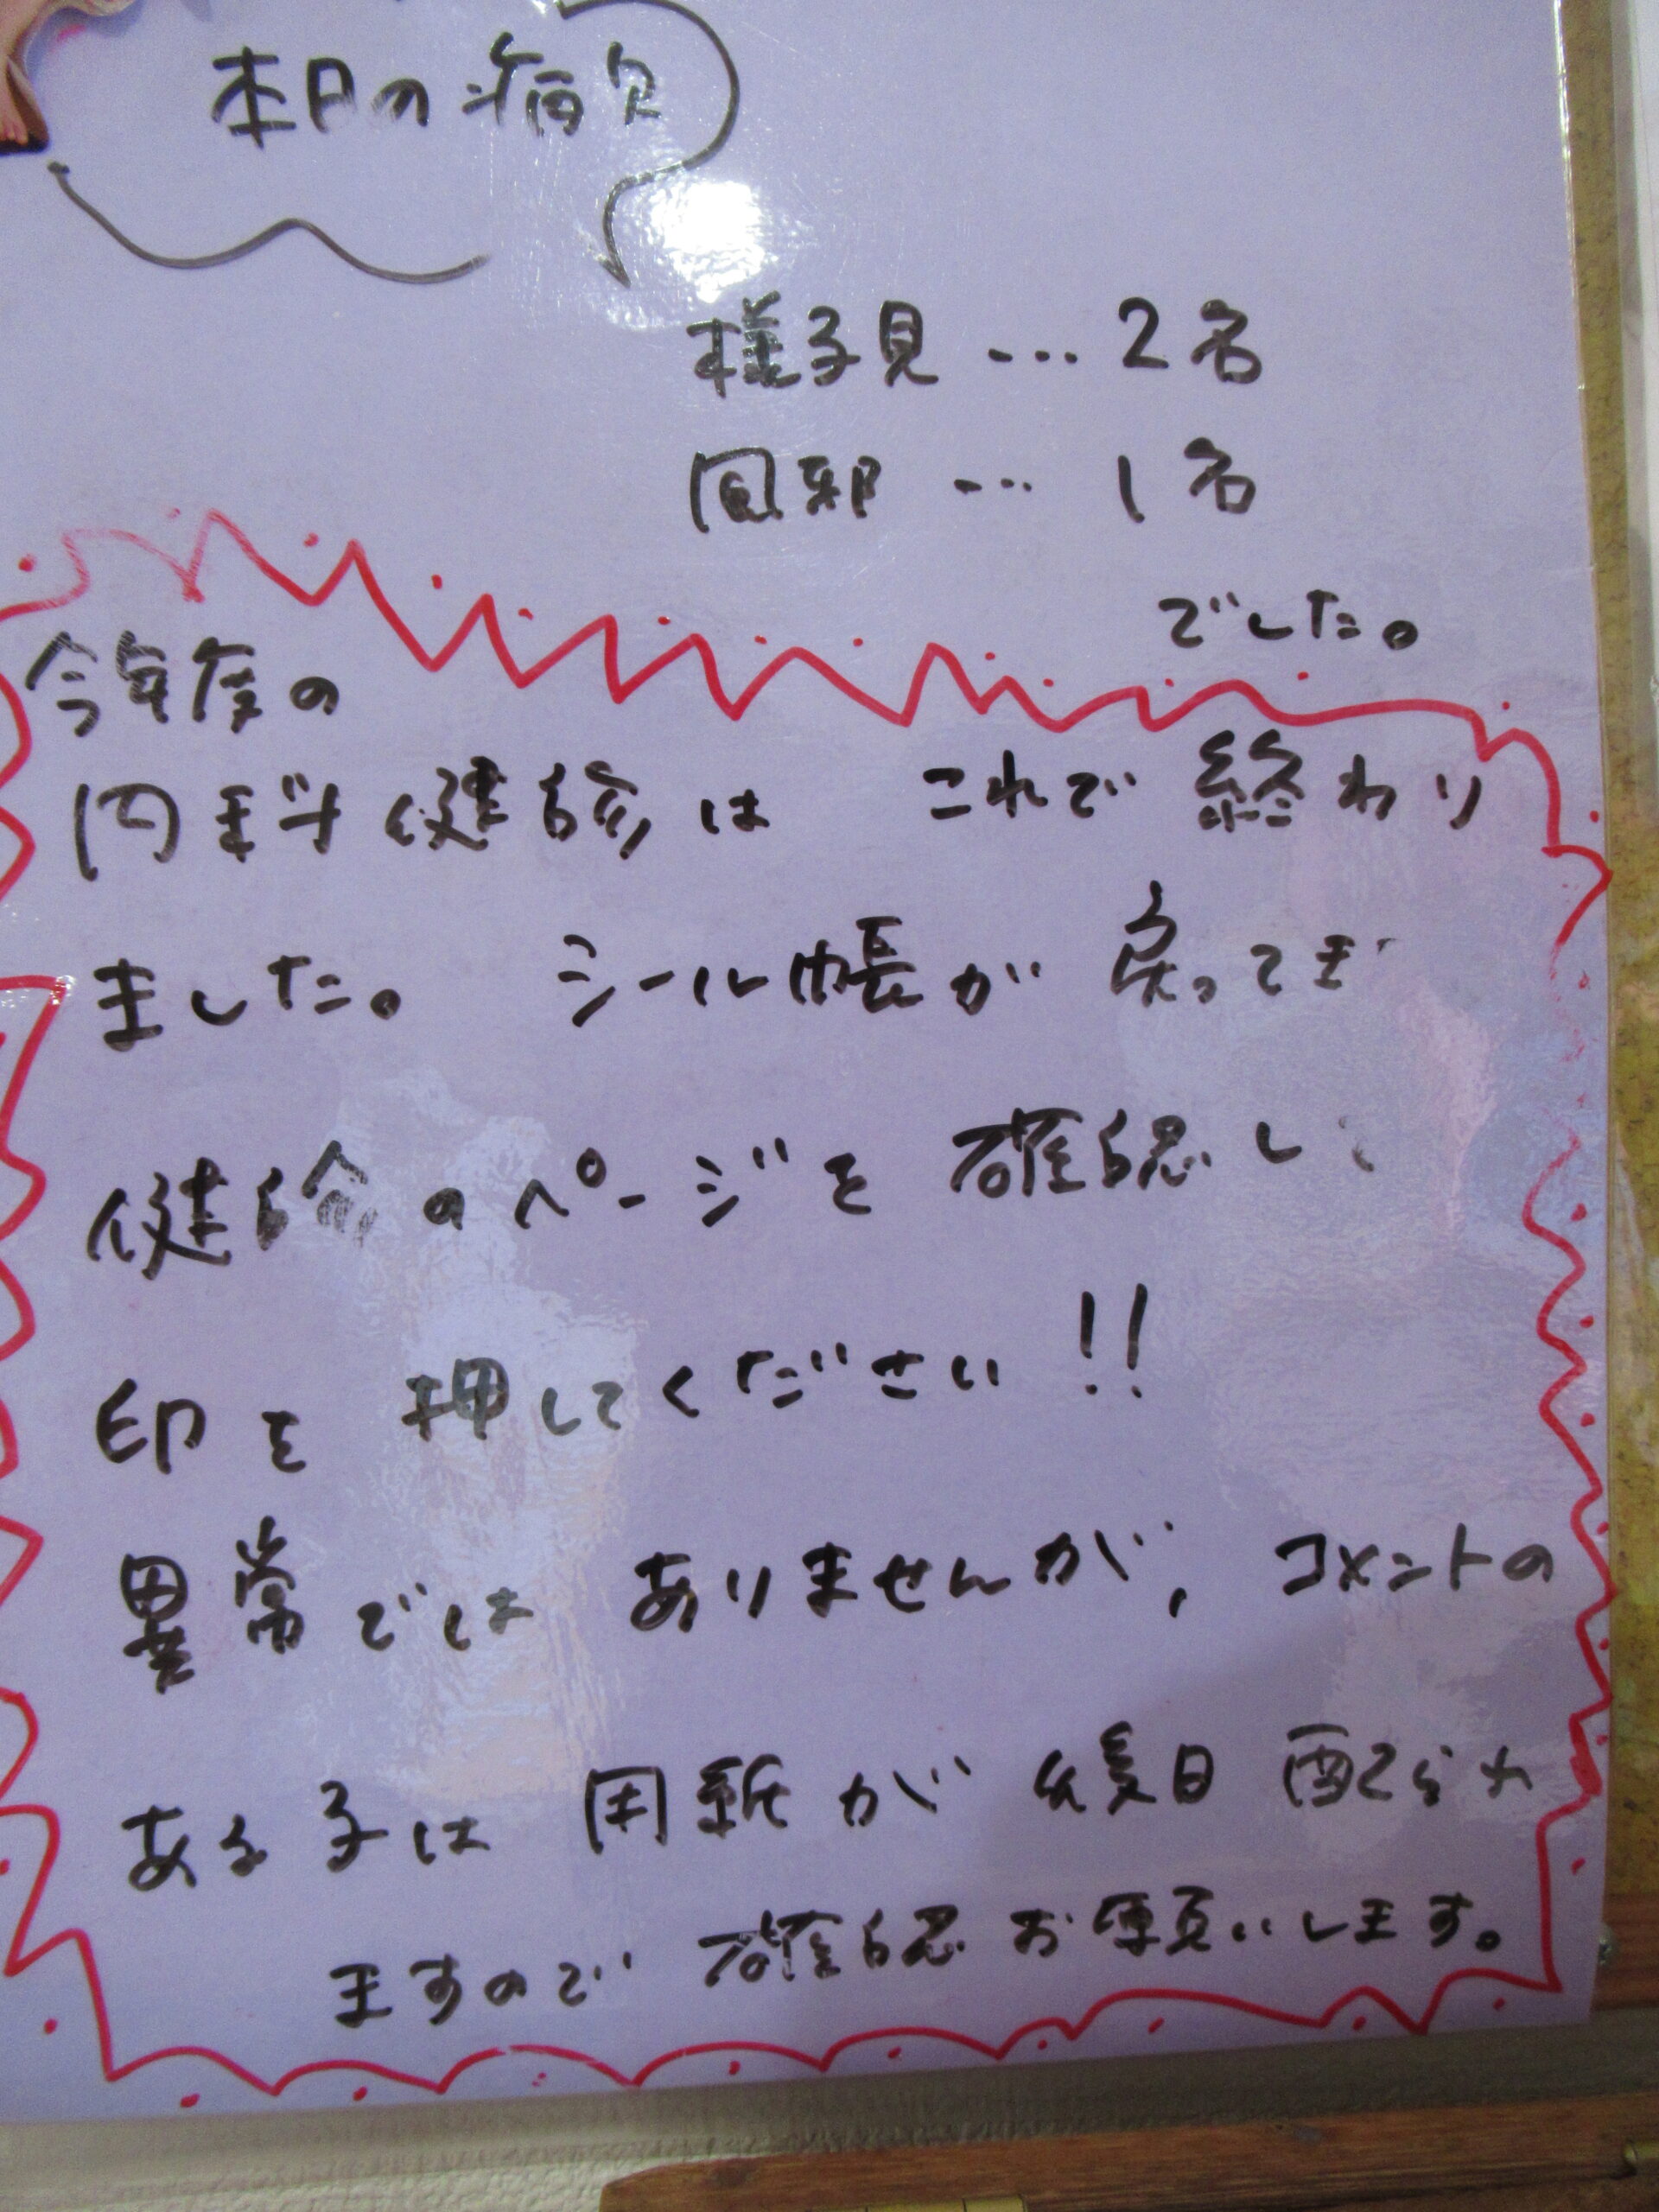 本日の病欠
様子見…2名
風邪…1名
でした。
今年度の
内科健診は これで終わり
ました。 シール帳が戻ってき
健診のページを確認し
印を押してください!!
異常ではありませんが、コメントの
ある子は用紙が後日配られ
ますので確認お願いします。